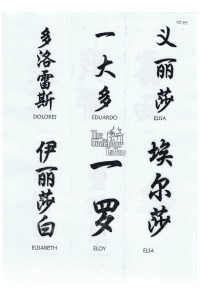 多洛雷斯
DOLORES
一大多
EDUARDO
义丽莎
ELISA
伊丽莎白
ELISABETH
一罗
ELOY
埃尔莎
ELSA